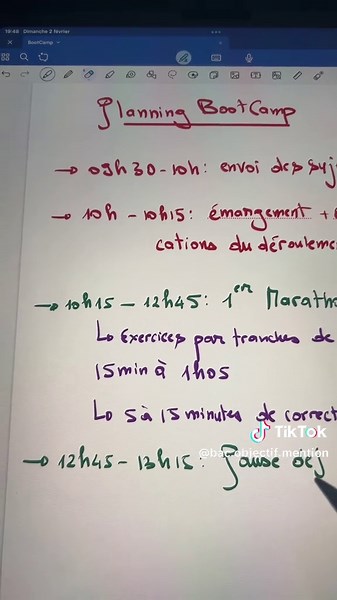 19:48 Dimanche 2 février
BootCamp
Planning BootCamp
→ 09h30-10h: envoi des suj
→ 10h - 10h15: émangement +
cations du dérouleme
→ 10h15 - 12h45: 1er Maratho
↳ Exercices par tranches de
15min à 1h05
↳ 5 à 15 minutes de correct
TikTok
@bac.objectif.mention
→ 12h45 - 13h15: Pause dej